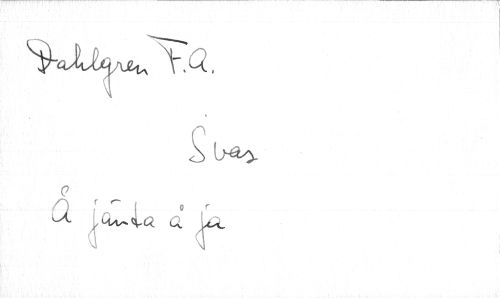 Dahlgren F.A.
Svar
Å jänta å ja